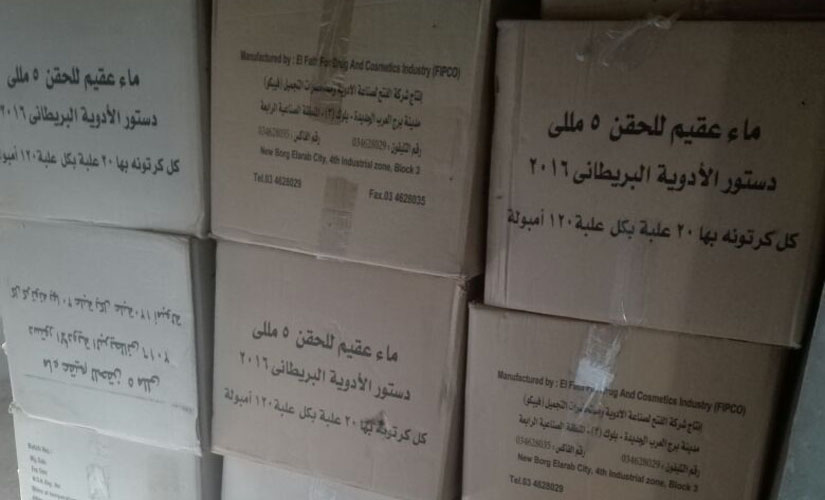 ماء عقيم للحقن ٥ مللى
دستور الأدوية البريطانى ٢٠١٦
كل كرتونه بها ٢٠ علبة بكل علبة ١٢٠ أمبولة
Manufactured by : El Fath For Drug And Cosmetics Industry (FIPCO)
إنتاج شركة الفتح لصناعة الأدوية ومستحضرات التجميل (فيبكو)
مدينة برج العرب الجديدة - بلوك (٣) - المنطقة الصناعية الرابعة
رقم التليفون: 034628029 رقم الفاكس: 034628035
New Borg Elarab City, 4th Industrial zone, Block 3
Tel.03 4628029 Fax.03 4628035
ماء عقيم للحقن ٥ مللى
دستور الأدوية البريطانى ٢٠١٦
كل كرتونه بها ٢٠ علبة بكل علبة ١٢٠ أمبولة
ماء عقيم للحقن ٥ مللى
دستور الأدوية البريطانى ٢٠١٦
كل كرتونه بها ٢٠ علبة بكل علبة ١٢٠ أمبولة
ماء عقيم للحقن ٥ مللى
دستور الأدوية البريطانى ٢٠١٦
كل كرتونه بها ٢٠ علبة بكل علبة ١٢٠ أمبولة
Manufactured by : El Fath For Drug And Cosmetics Industry (FIPCO)
إنتاج شركة الفتح لصناعة الأدوية ومستحضرات التجميل (فيبكو)
مدينة برج العرب الجديدة - بلوك (٣) - المنطقة الصناعية الرابعة
رقم التليفون: 034628029 رقم الفاكس: 034628035
New Borg Elarab City, 4th Industrial zone, Block 3
Tel.03 4628029 Fax.03 4628035
Batch No.:
Mfg. Date
Exp. Date